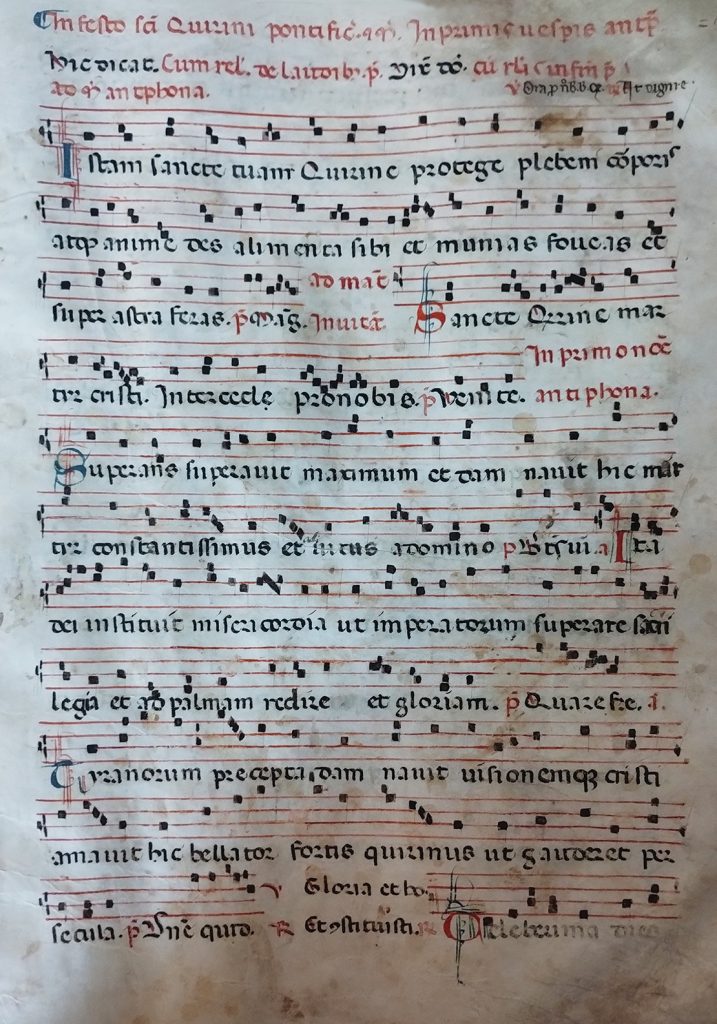 In festo sc̄i Quirini pontific̄. ⁊ m̄. In primis uesp̄is ant̄.
Hic dicat. Cum rel̄. de laudibꝫ. p̄. Dix̄ dō. cū
ad m̄ antiphona. ℣ Ora p nb̄.
Istam sancte tuam Quirine protege plebem corporis
atq anime des alimenta sibi et munias foueas et
super astra feras. p̄. Mag̃. ad mat̄ Inuitat̄. Sancte Qirine mar
tir cristi. Intercede pro nobis. p̄ Venite. In primo noc̄ antiphona.
Superans superauit maximum et dam nauit hic mar
tir constantissimus et tutus a domino p̄ Bt̄s ui. a Ita
dei instituit misericordia ut imperatorum superare sacri
legia et ad palmam redire et gloriam. p̄ Quare fre. a.
Tyranorum precepta dam nauit uisionemq cristi
amauit hic bellator fortis quirinus ut gauderet per
secula. p̄ Dn̄e quid. ℣ Gloria et ho. ℟ Et ꝯstituisti. ℟ Celeberima dies